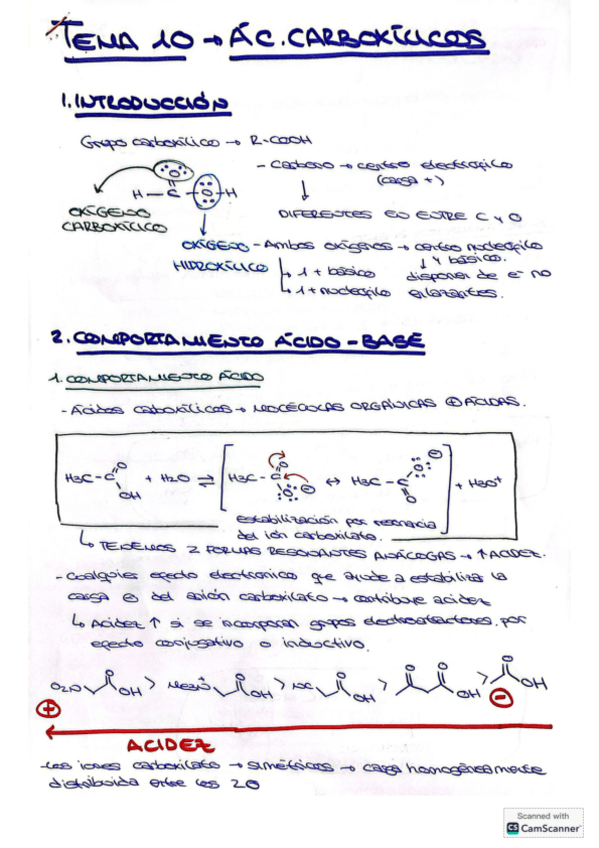 TEMA 10 → ÁC. CARBOXÍLICOS
1. INTRODUCCIÓN
Grupo carboxílico → R-COOH
- Carbono → centro electrofílico
(carga +)
↓
DIFERENTES EN ENTRE C y O
H - C - O - H
OXÍGENO
CARBOXÍLICO
OXÍGENO
HIDROXÍLICO
- Ambos oxígenos → centro nucleófilo
y básico.
↳ 1 + básico
↳ 1 + nucleófilo
disponen de e⁻ no
enlazantes.
2. COMPORTAMIENTO ÁCIDO-BASE
1. COMPORTAMIENTO ÁCIDO
- Ácidos carboxílicos → MOLÉCULAS ORGÁNICAS ⊕ ÁCIDAS.
H3C-C O OH + H2O ⇌ [ H3C-C O O ⊖ ↔ H3C-C O ⊖ O ] + H3O⁺
estabilización por resonancia
del ión carboxilato.
↳ TENEMOS 2 FORMAS RESONANTES ANÁLOGAS → ↑ ACIDEZ.
- Cualquier efecto electrónico que ayude a estabilizar la
carga ⊖ del anión carboxilato → contribuye acidez
↳ Acidez ↑ si se incorporan grupos electroatractores, por
efecto conjugativo o inductivo.
O2N OH > Me3N OH > NC OH > O O OH > O OH
⊕ ⊖
ACIDEZ
- Los iones carboxilato → simétricos → carga homogéneamente
distribuida entre los 2 O
Scanned with
CS CamScanner